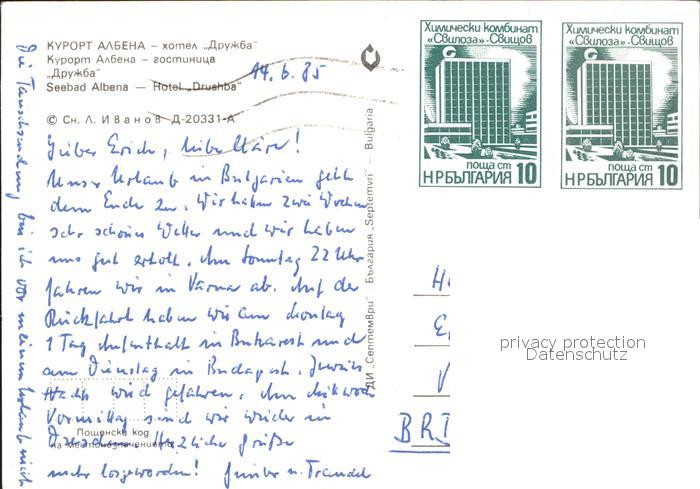 КУРОРТ АЛБЕНА – хотел „Дружба"
Курорт Албена – гостиница
„Дружба"
Seebad Albena – Hotel „Drushba"
© Сн. Л. Иванов Д-20331-А
14.6.85
Lieber Erich, liebe Kläre!
Unser Urlaub in Bulgarien geht
dem Ende zu. Wir haben zwei Wochen
sehr schönes Wetter und wir haben
uns gut erholt. Am Sonntag 22 Uhr
fahren wir in Varna ab. Auf der
Rückfahrt haben wir am Montag
1 Tag Aufenthalt in Bukarest und
am Dienstag in Budapest. Jeweils
Nachts wird gefahren. Am Mittwoch
Vormittag sind wir wieder in
Herzliche Grüße
Günter u.
Die Tauschsendung bin ich vor meinem Urlaub nicht
mehr losgeworden!
Пощенски код
на местоназначението
ДИ „Септември" България „Septemvri" – Bulgaria
Химически комбинат
«Свилоза»-Свищов
поща ст
НРБЪЛГАРИЯ 10
Химически комбинат
«Свилоза»-Свищов
поща ст
НРБЪЛГАРИЯ 10
H
E
V
BRD
privacy protection
Datenschutz